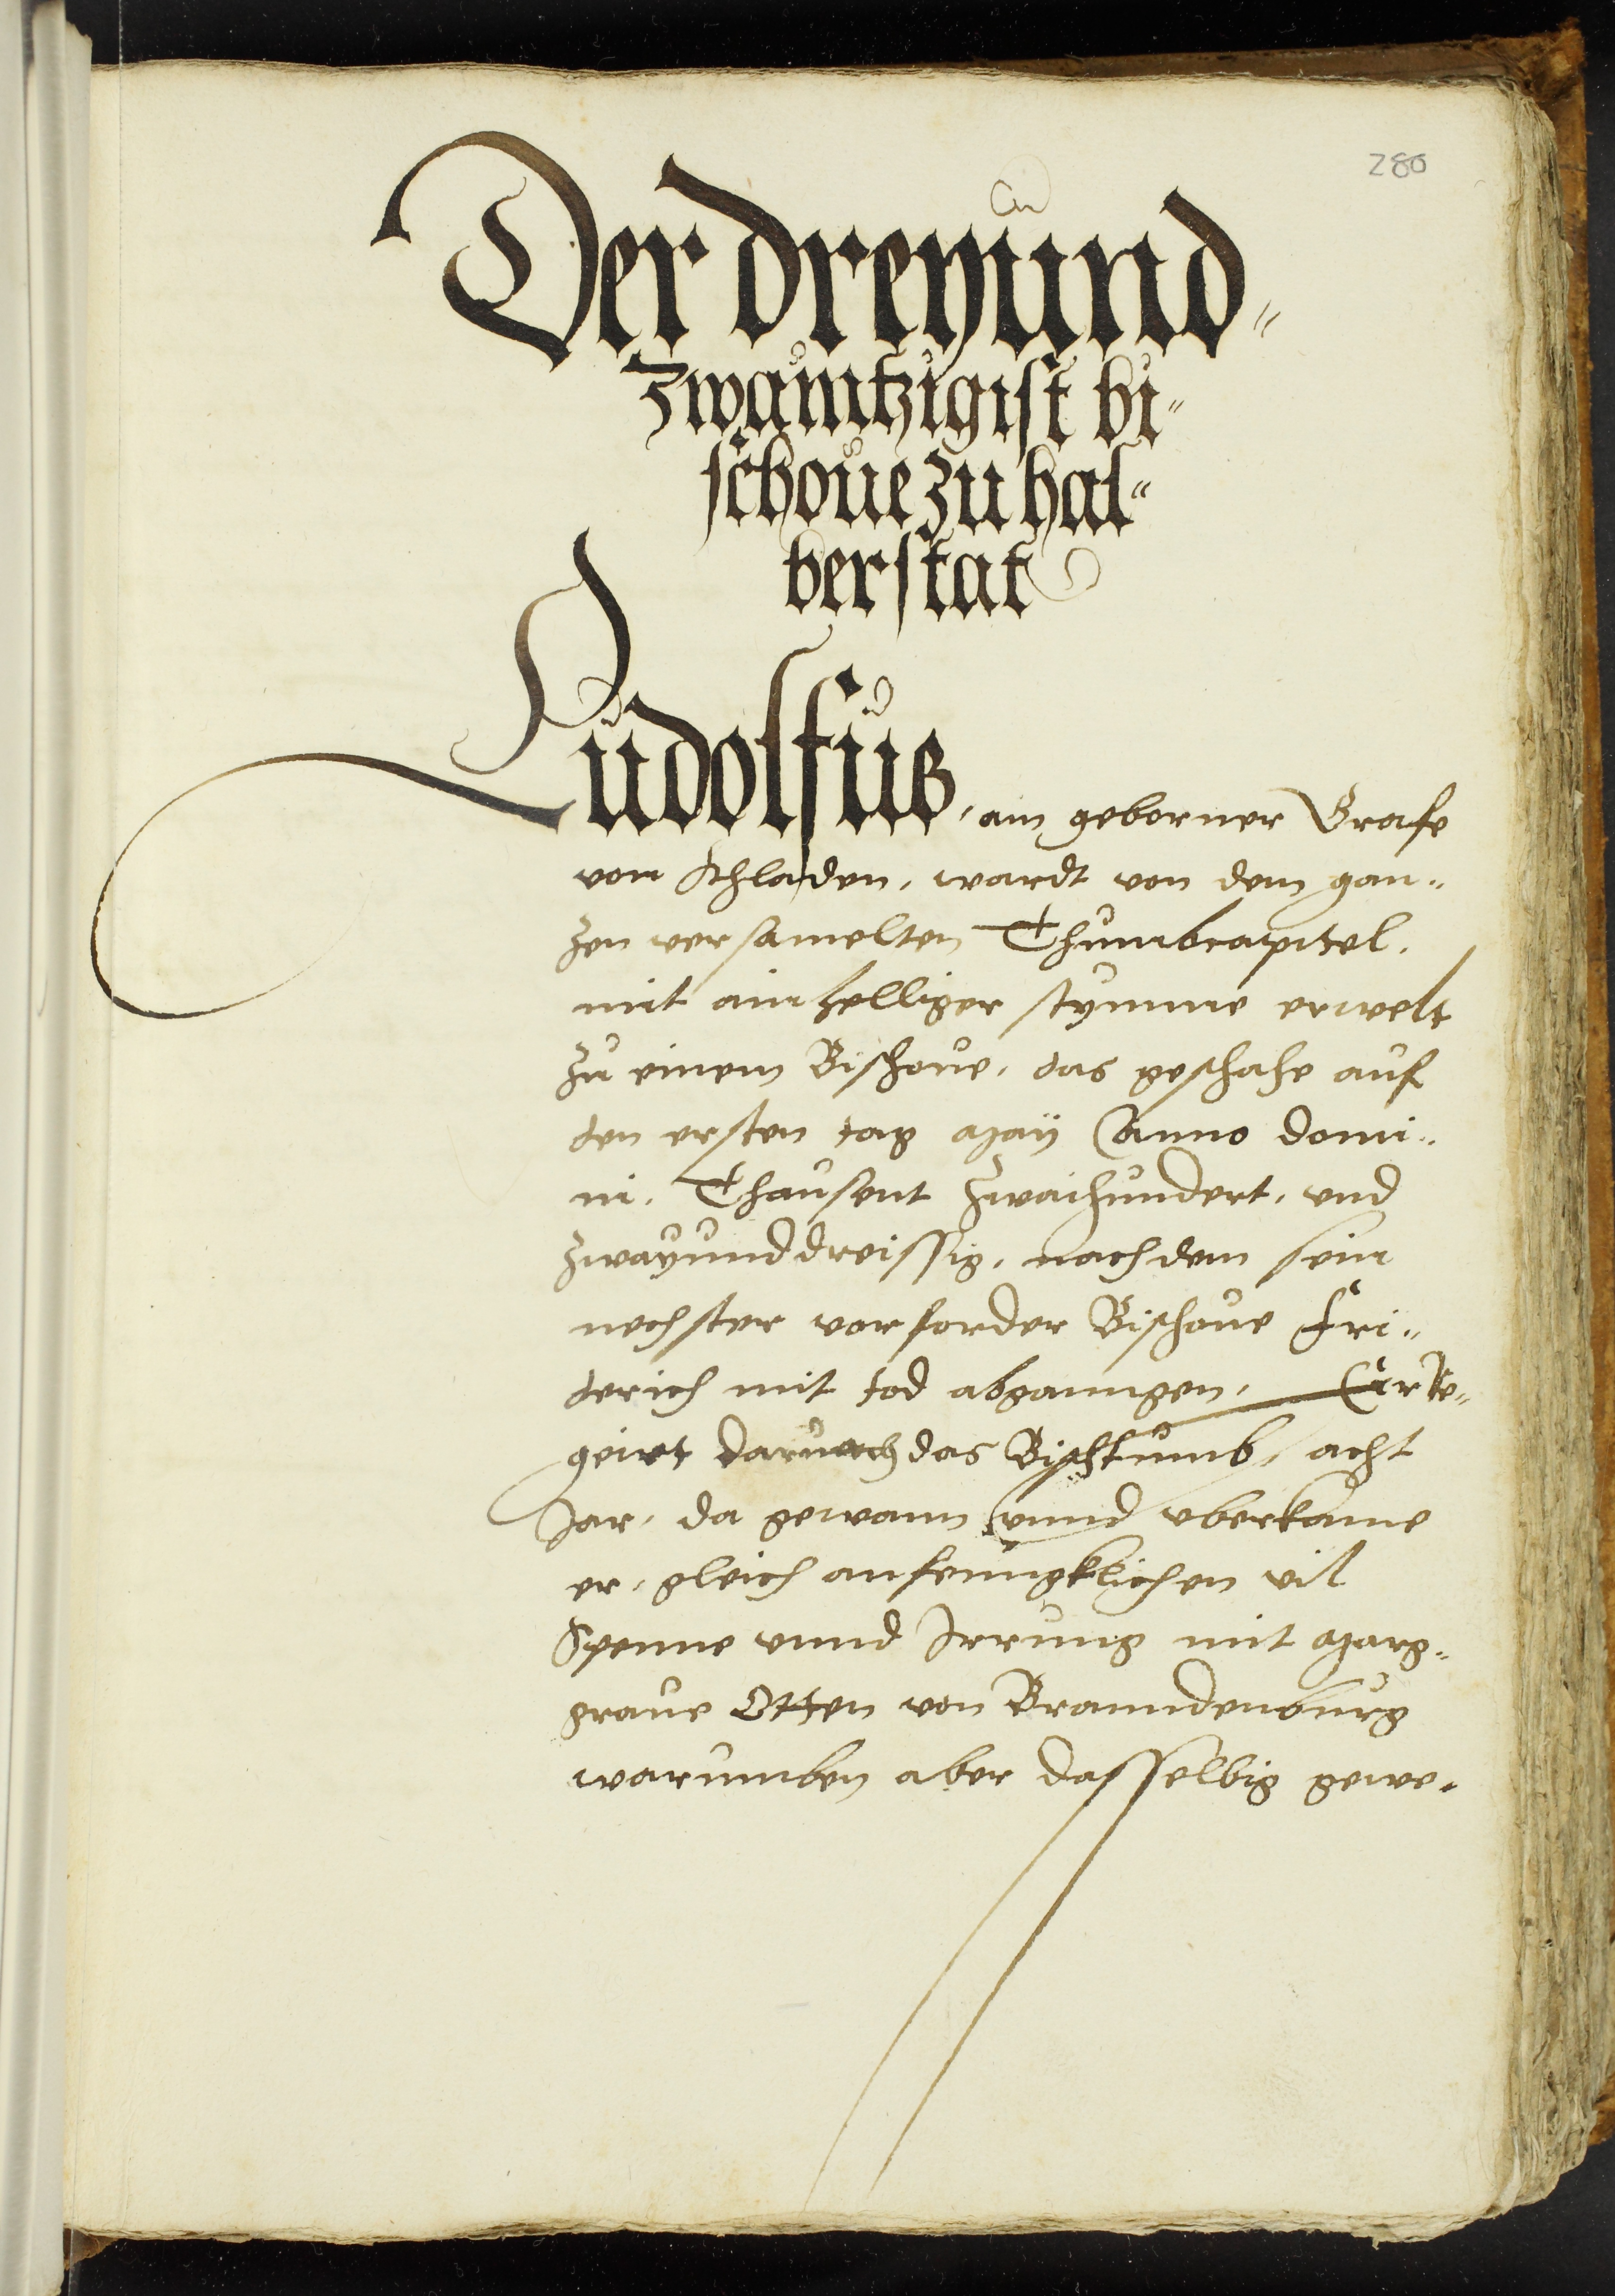 280
Der dreyund=
zwaintzigist bi=
schoue zu hal=
berstat
Ludolfus, ain geborner Grafe
von Schladen, wardt von dem gan=
zen versamelten Thumbcapitel,
mit ainhelliger stymme erwelt
zu einem Bischoue, das geschahe auf
den ersten tag May Anno domi=
ni, Thausent zwaihundert, und
zwayunddreissig, nachdem sein
nechster vorforder Bischoue Fri=
derich mit tod abganngen, Er Re=
giert darnach das Bischtumb, acht
Jar, da gewann vnnd vberkame
er, gleich anfenngklichen vil
Spenne vnnd Irrung mit Marg=
graue Otten von Branndenburg
warumben aber dasselbig gewe=